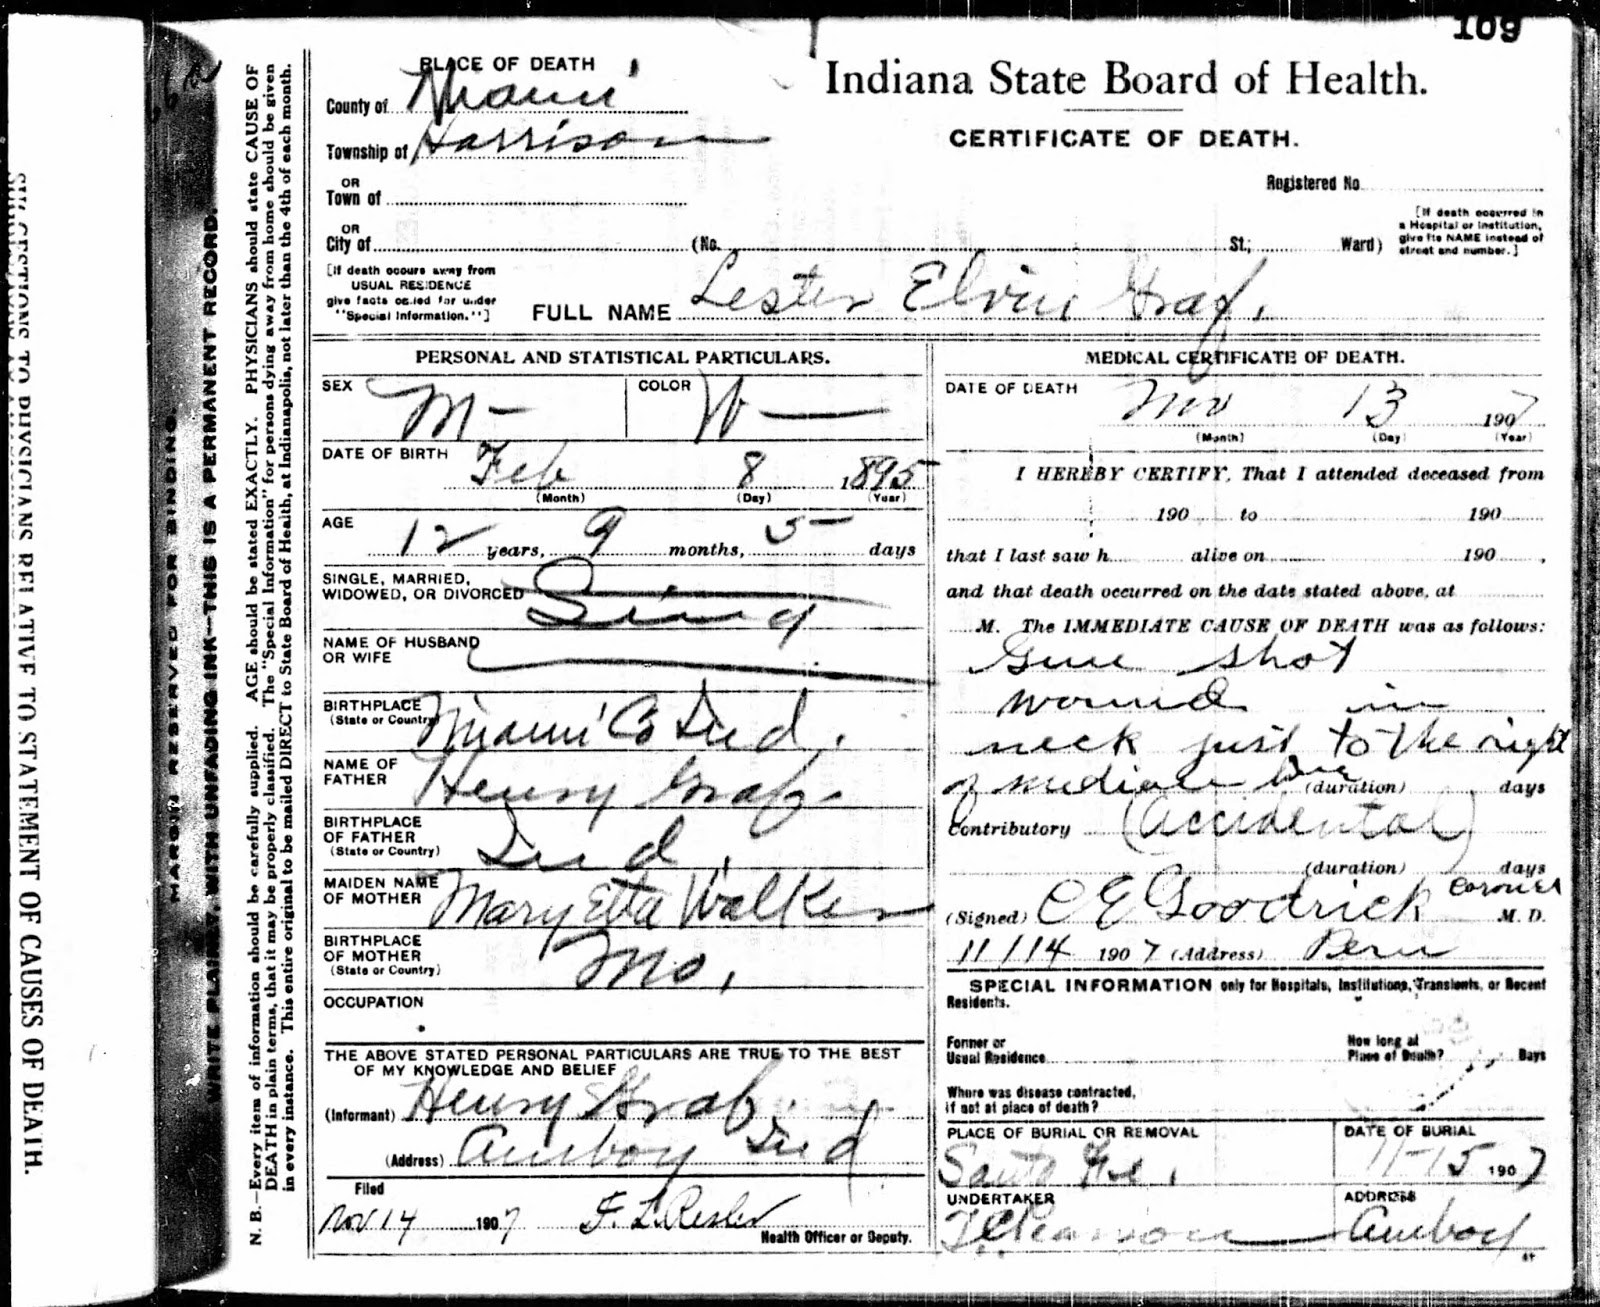 109
PLACE OF DEATH
County of Miami
Township of Harrison
OR
Town of
OR
City of (No. St.; Ward)
[If death occurs away from
USUAL RESIDENCE
give facts called for under
"Special Information."]
Indiana State Board of Health.
CERTIFICATE OF DEATH.
Registered No.
[If death occurred in
a Hospital or Institution,
give its NAME instead of
street and number.]
FULL NAME Lester Elvin Graf.
PERSONAL AND STATISTICAL PARTICULARS.
SEX M COLOR W
DATE OF BIRTH Feb 8 1895
(Month) (Day) (Year)
AGE 12 years, 9 months, 5 days
SINGLE, MARRIED,
WIDOWED, OR DIVORCED Sing
NAME OF HUSBAND
OR WIFE
BIRTHPLACE
(State or Country) Miami Co Ind.
NAME OF
FATHER Henry Graf.
BIRTHPLACE
OF FATHER
(State or Country) Ind.
MAIDEN NAME
OF MOTHER Mary Etta Walker
BIRTHPLACE
OF MOTHER
(State or Country) Mo.
OCCUPATION
THE ABOVE STATED PERSONAL PARTICULARS ARE TRUE TO THE BEST
OF MY KNOWLEDGE AND BELIEF
(Informant) Henry Graf.
(Address) Amboy Ind
Filed
Nov 14 1907 F. L. Resler
Health Officer or Deputy.
MEDICAL CERTIFICATE OF DEATH.
DATE OF DEATH Nov 13 1907
(Month) (Day) (Year)
I HEREBY CERTIFY, That I attended deceased from
190 to 190
that I last saw h alive on 190 ,
and that death occurred on the date stated above, at
M. The IMMEDIATE CAUSE OF DEATH was as follows:
Gun shot
wound in
neck just to the right
of mediate line (duration) days
Contributory (Accidental)
(duration) days
(Signed) C E Goodrick Coroner M. D.
11/14 1907 (Address) Peru
SPECIAL INFORMATION only for Hospitals, Institutions, Transients, or Recent
Residents.
Former or
Usual Residence
How long at
Place of Death? Days
Where was disease contracted,
if not at place of death?
PLACE OF BURIAL OR REMOVAL
Santa Fe.
DATE OF BURIAL
11-15 1907
UNDERTAKER
ADDRESS
Amboy
N. B.—Every item of information should be carefully supplied. AGE should be stated EXACTLY. PHYSICIANS should state CAUSE OF
DEATH in plain terms, that it may be properly classified. The "Special Information" for persons dying away from home should be given
in every instance. This entire original to be mailed DIRECT to State Board of Health, at Indianapolis, not later than the 4th of each month.
WRITE PLAINLY, WITH UNFADING INK—THIS IS A PERMANENT RECORD.
MARGIN RESERVED FOR BINDING.
SUGGESTIONS TO PHYSICIANS RELATIVE TO STATEMENT OF CAUSES OF DEATH.